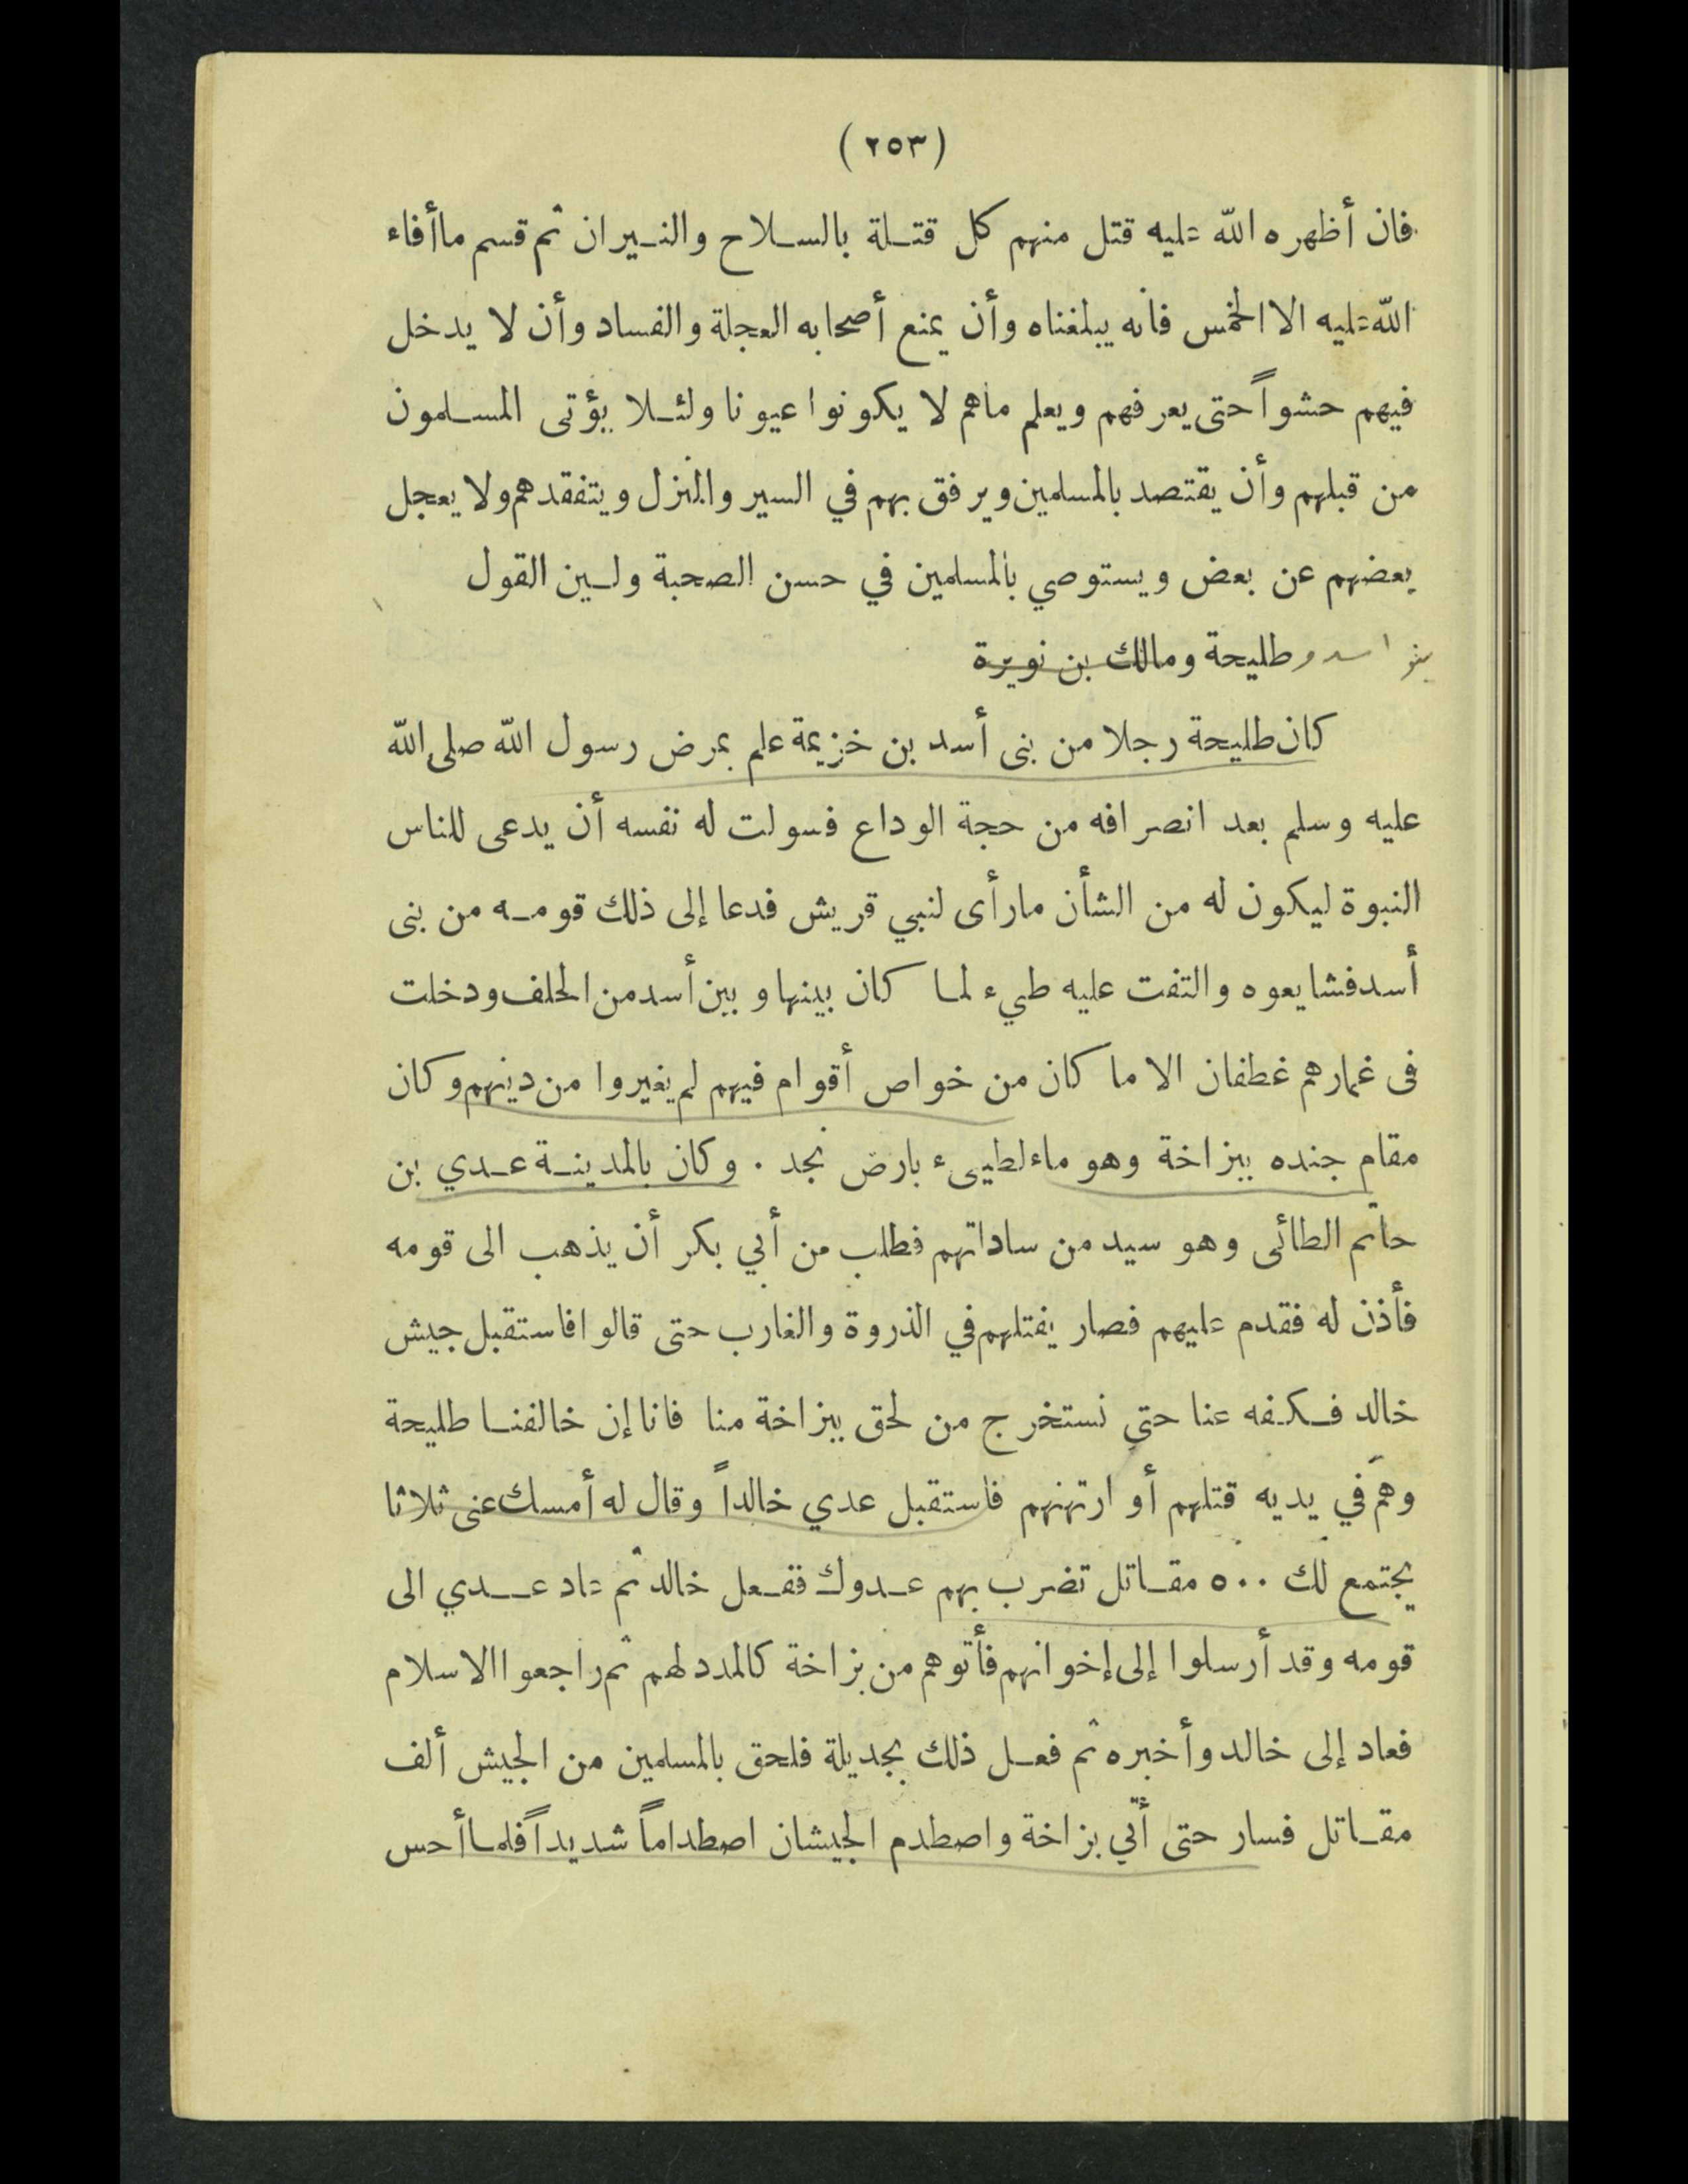 (٢٥٣)
فان أظهره الله عليه قتل منهم كل قتلة بالسلاح والنيران ثم قسم ماأفاء
الله عليه الا الخمس فانه يبلغناه وأن يمنع أصحابه العجلة والفساد وأن لا يدخل
فيهم حشواً حتى يعرفهم ويعلم ماهم لا يكونوا عيونا ولئلا يؤتى المسلمون
من قبلهم وأن يقتصد بالمسلمين ويرفق بهم في السير والمنزل ويتفقدهم ولا يعجل
بعضهم عن بعض ويستوصي بالمسلمين في حسن الصحبة ولين القول
بنو اسد و طليحة ومالك بن نويرة
كان طليحة رجلا من بنى أسد بن خزيمة علم بمرض رسول الله صلى الله
عليه وسلم بعد انصرافه من حجة الوداع فسولت له نفسه أن يدعى للناس
النبوة ليكون له من الشأن مارأى لنبي قريش فدعا إلى ذلك قومه من بنى
أسد فشايعوه والتفت عليه طيء لما كان بينها وبين أسد من الحلف ودخلت
فى غمارهم غطفان الا ما كان من خواص أقوام فيهم لم يغيروا من دينهم وكان
مقام جنده ببزاخة وهو ماء لطيىء بارض نجد . وكان بالمدينة عدي بن
حاتم الطائى وهو سيد من ساداتهم فطلب من أبي بكر أن يذهب الى قومه
فأذن له فقدم عليهم فصار يفتلهم في الذروة والغارب حتى قالوا فاستقبل جيش
خالد فكفه عنا حتى نستخرج من لحق ببزاخة منا فانا إن خالفنا طليحة
وهم في يديه قتلهم أو ارتهنهم فاستقبل عدي خالداً وقال له أمسك عنى ثلاثا
يجتمع لك ٥٠٠ مقاتل تضرب بهم عدوك ففعل خالد ثم عاد عدي الى
قومه وقد أرسلوا إلى إخوانهم فأتوهم من بزاخة كالمدد لهم ثم راجعوا الاسلام
فعاد إلى خالد وأخبره ثم فعل ذلك بجديلة فلحق بالمسلمين من الجيش ألف
مقاتل فسار حتى أتي بزاخة واصطدم الجيشان اصطداماً شديداً فلما أحس